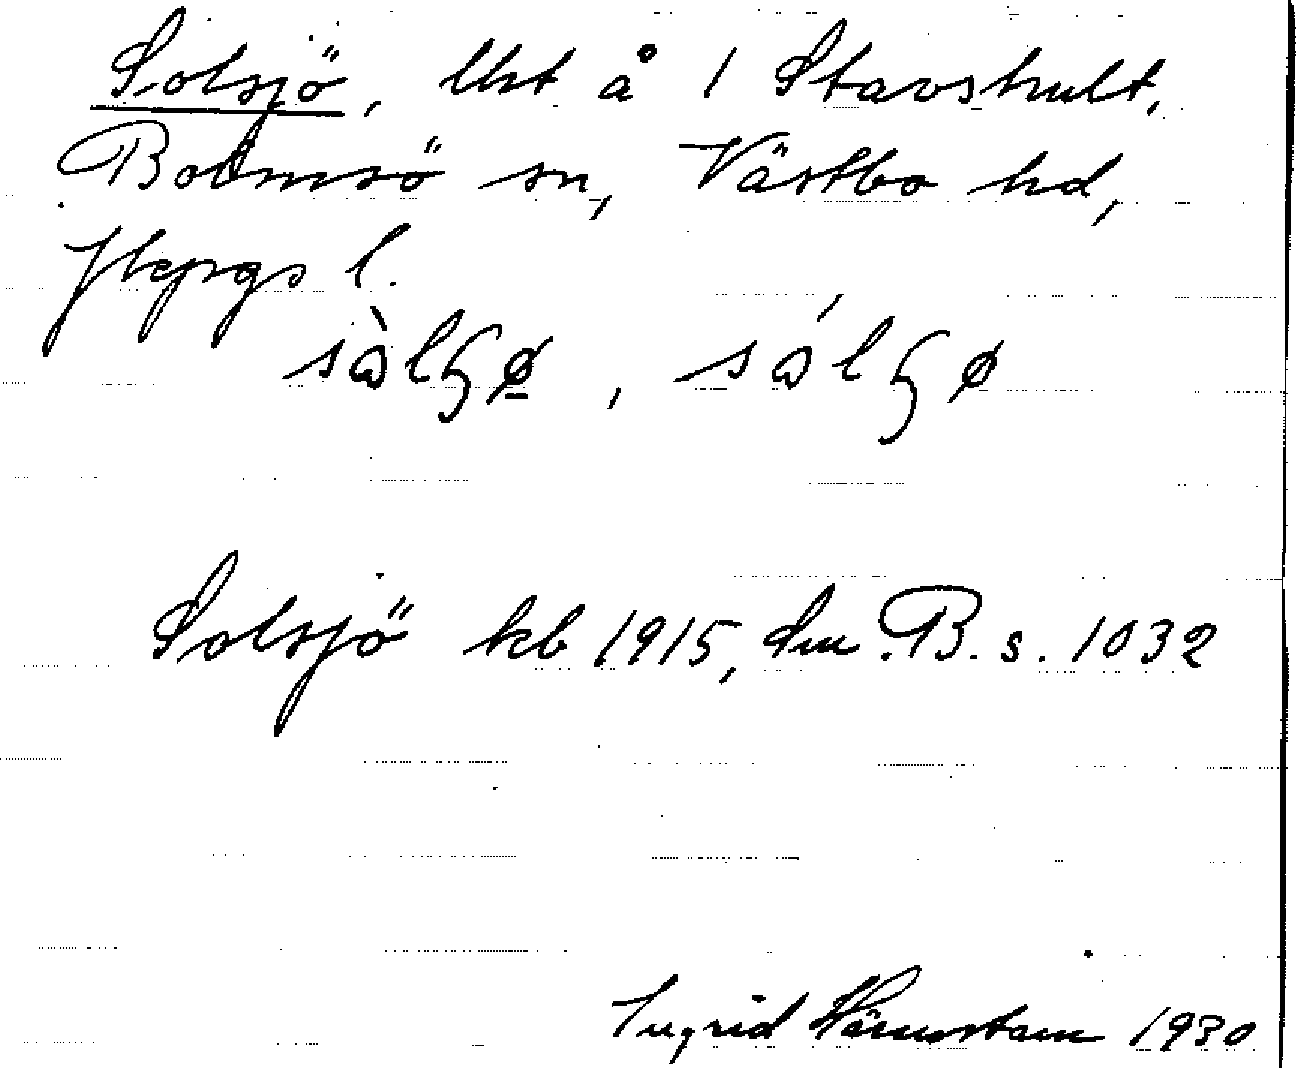 Solsjö, lht å 1 Stavshult,
Bolmsö sn, Västbo hd,
Jkpgs l.
sòlʒø̠, sólʒø
Solsjö kb 1915, dm B. s. 1032
Ingrid Härnstam 1930